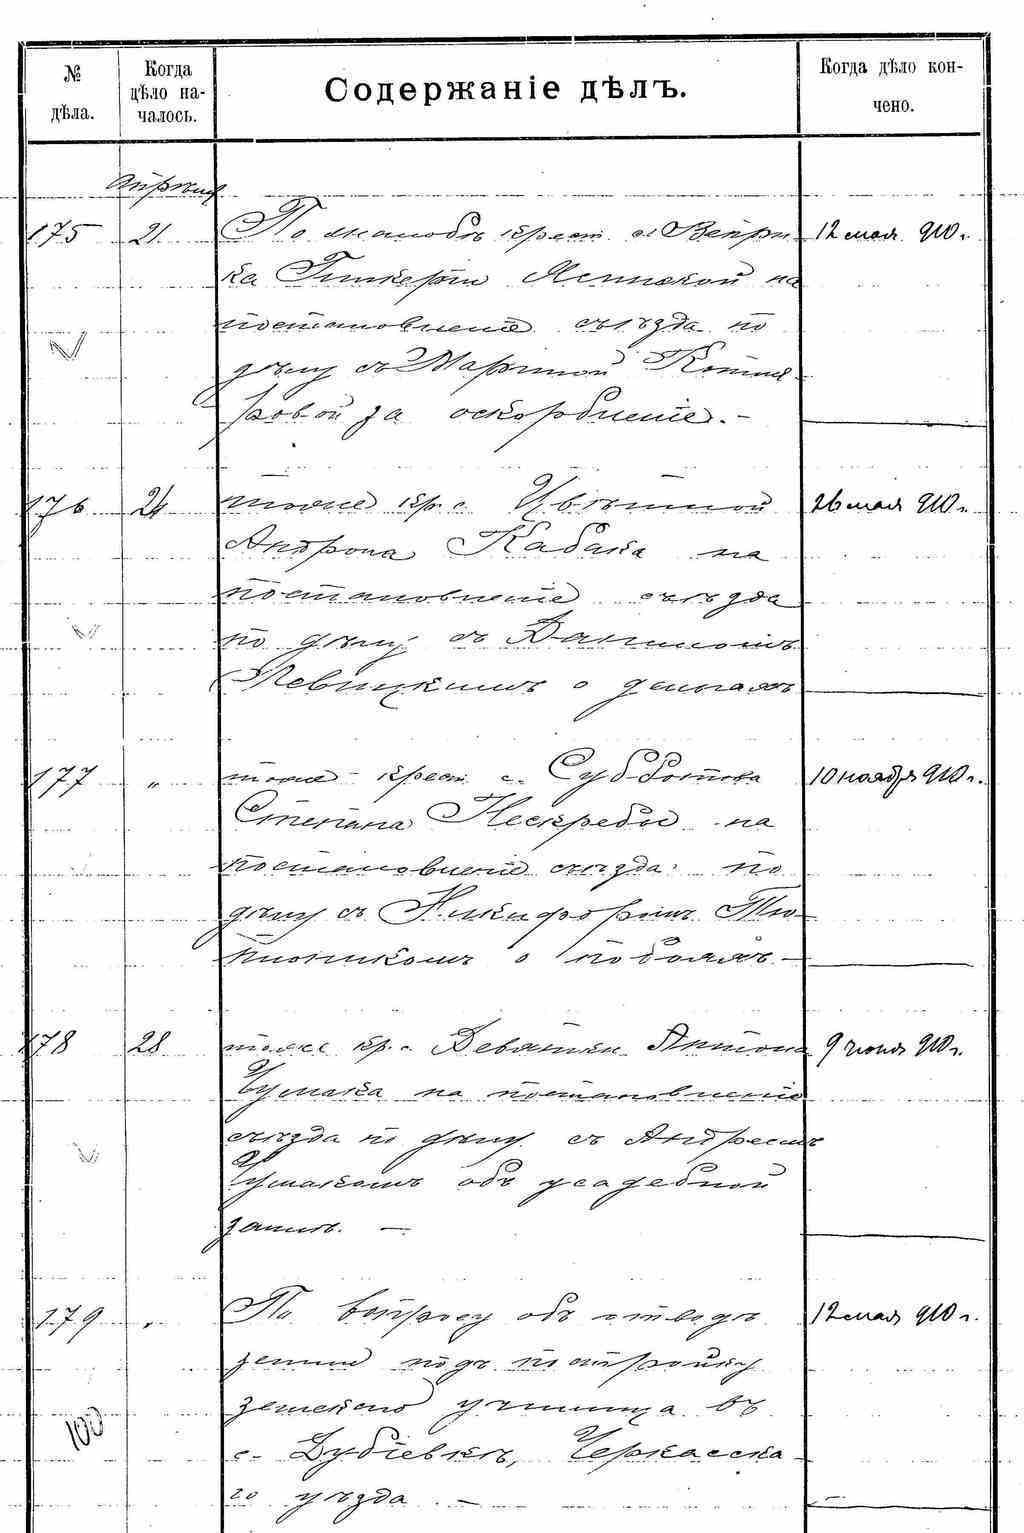 № дѣла.
Когда дѣло началось.
Содержаніе дѣлъ.
Когда дѣло кончено.
Апрѣля
175 21 По жалобѣ крест. с. 12 мая 910 г.
ка Гликеріи на
постановленіе съѣзда по
дѣлу съ Мариной Котля-
ровой за оскорбленіе. –
176 24 тоже кр. с. Цвѣтной 26 мая 910 г.
Андрона Кабака на
постановленіе съѣзда
по дѣлу съ Даниломъ
Левицкимъ о деньгахъ
177 „ тоже крест. с. Субботова 10 ноября 910 г.
Степана Нескребы на
постановленіе съѣзда по
дѣлу съ Никифоромъ Тю-
тюникомъ о побояхъ –
178 28 тоже кр. с. Антона 9 іюня 910 г.
Чумака на постановленіе
съѣзда по дѣлу съ Андреемъ
Чумакомъ объ усадебной
землѣ. –
179 „ По вопросу объ отводѣ 12 мая 910 г.
земли подъ постройку
земскаго училища въ
100
с. Дубіевкѣ, Черкасска-
го уѣзда –